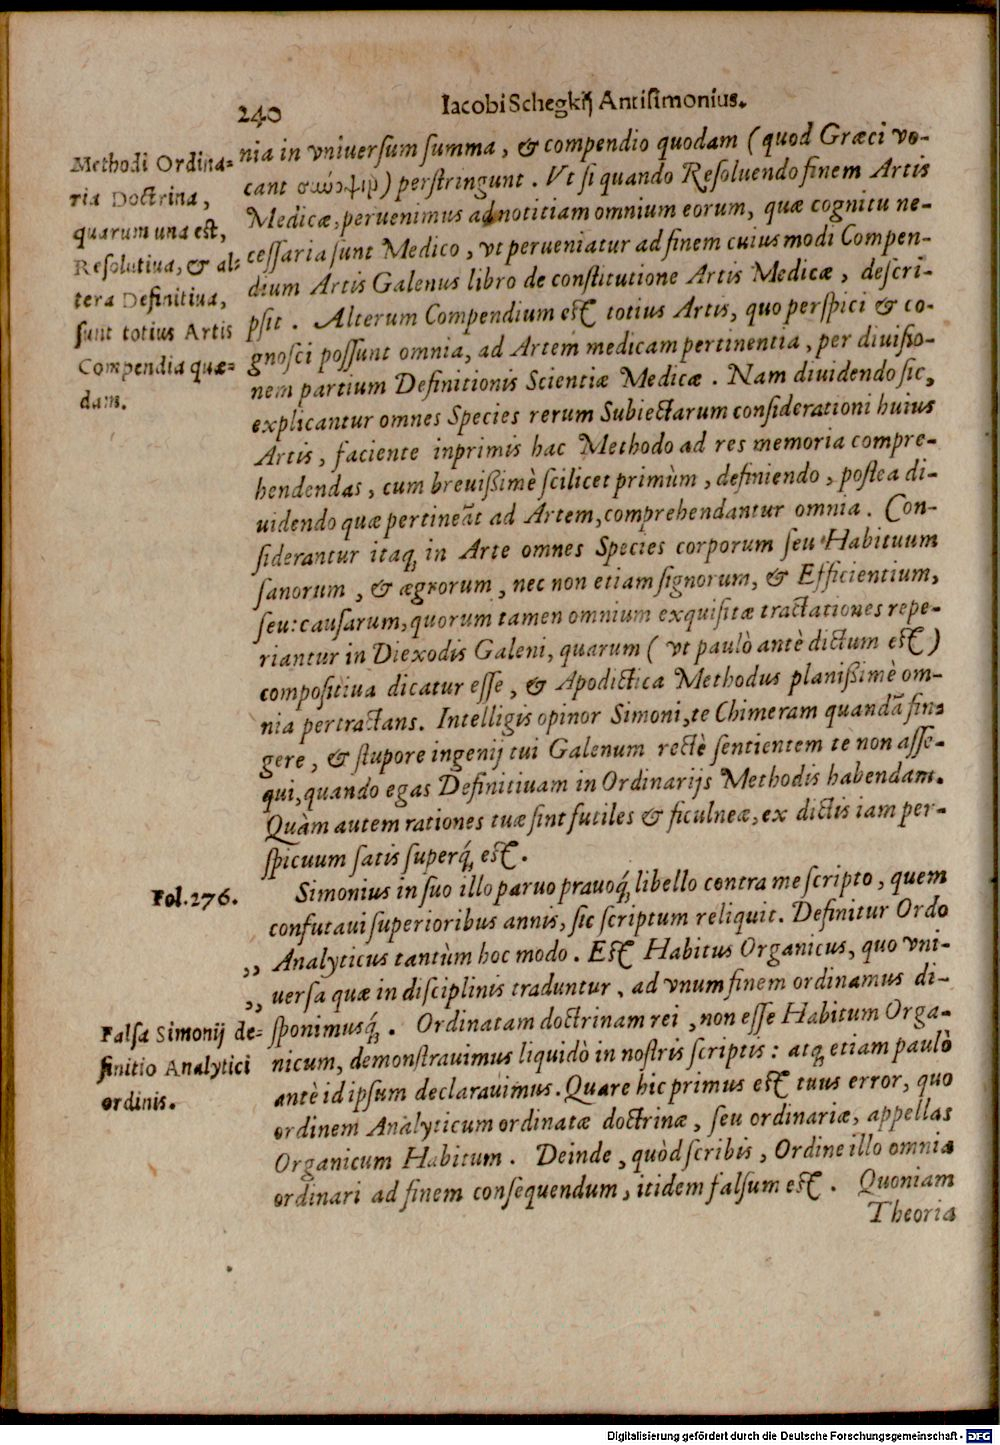 240
Iacobi Schegkij Antisimonius.
Methodi Ordina=
ria Doctrina,
quarum una est,
Resolutiua, & al=
tera Definitiua,
sunt totius Artis
Compendia quæ=
dam.
nia in vniuersum summa, & compendio quodam (quod Græci vo-
cant) perstringunt. Vt si quando Resoluendo finem Artis
Medicæ, peruenimus ad notitiam omnium eorum, quæ cognitu ne-
cessaria sunt Medico, vt perueniatur ad finem cuiusmodi Compen-
dium Artis Galenus libro de constitutione Artis Medicæ, descri-
psit. Alterum Compendium est totius Artis, quo perspici & co-
gnosci possunt omnia, ad Artem medicam pertinentia, per diuisio-
nem partium Definitionis Scientiæ Medicæ. Nam diuidendo sic,
explicantur omnes Species rerum Subiectarum considerationi huius
Artis, faciente inprimis hac Methodo ad res memoria compre-
hendendas, cum breuißimè scilicet primùm, definiendo, postea di-
uidendo quæ pertineãt ad Artem, comprehendantur omnia. Con-
siderantur itaq; in Arte omnes Species corporum seu Habituum
sanorum, & ægrorum, nec non etiam signorum, & Efficientium,
seu: causarum, quorum tamen omnium exquisitæ tractationes repe-
riantur in Diexodis Galeni, quarum (vt paulò antè dictum est)
compositiua dicatur esse, & Apodictica Methodus planißimè om-
nia pertractans. Intelligis opinor Simoni, te Chimeram quandã fin=
gere, & stupore ingenij tui Galenum rectè sentientem te non asse-
qui, quando egas Definitiuam in Ordinarijs Methodis habendam.
Quàm autem rationes tuæ sint futiles & ficulneæ, ex dictis iam per-
spicuum satis superq́; est.
Fol. 276.
Simonius in suo illo paruo prauoq́; libello contra me scripto, quem
confutaui superioribus annis, sic scriptum reliquit. Definitur Ordo
,, Analyticus tantùm hoc modo. Est Habitus Organicus, quo vni-
,, uersa quæ in disciplinis traduntur, ad vnum finem ordinamus di-
Falsa Simonij de=
finitio Analytici
ordinis.
sponimusq́;. Ordinatam doctrinam rei, non esse Habitum Orga-
nicum, demonstrauimus liquidò in nostris scriptis: atq; etiam paulò
antè id ipsum declarauimus. Quare hic primus est tuus error, quo
ordinem Analyticum ordinatæ doctrinæ, seu ordinariæ, appellas
Organicum Habitum. Deinde, quòd scribis, Ordine illo omnia
ordinari ad finem consequendum, itidem falsum est. Quoniam
Theoria
Digitalisierung gefördert durch die Deutsche Forschungsgemeinschaft - DFG